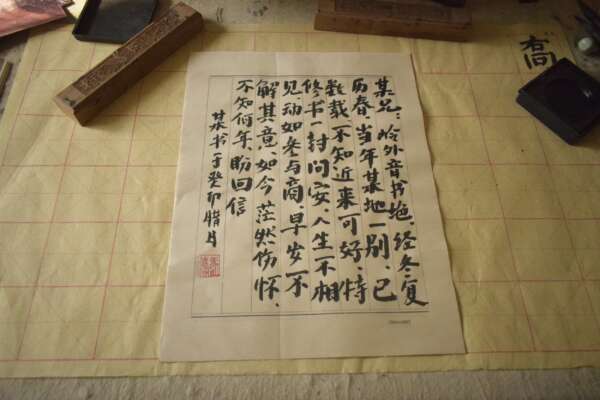 某兄：岭外音书绝，经冬复
历春，当年某地一别，已
数载，不知近来可好，特
修书一封问安，人生不相
见，动如参与商，早岁不
解其意，如今茫然伤怀，
不知何年，盼回信
某书于癸卯腊月